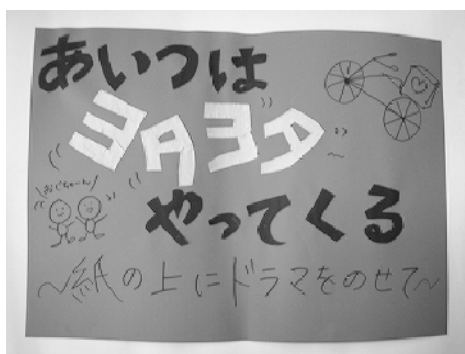 あいつは
ヨタヨタ
やってくる
～紙の上にドラマをのせて～